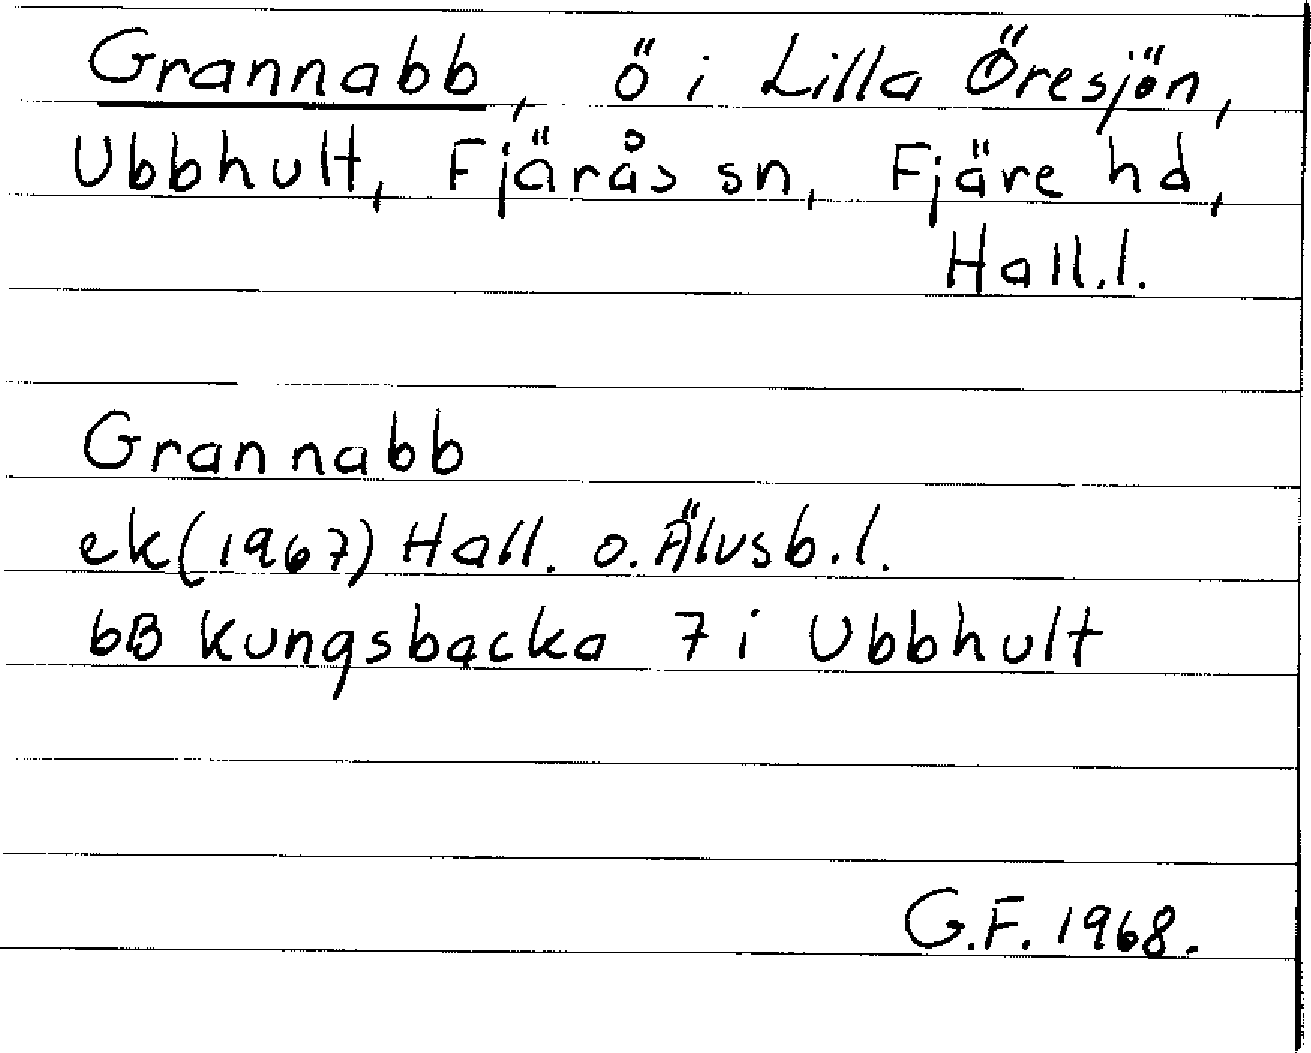 Grannabb, ö i Lilla Öresjön,
Ubbhult, Fjärås sn, Fjäre hd,
Hall.l.
Grannabb
ek (1967) Hall. o. Älvsb.l.
bB Kungsbacka 7 i Ubbhult
G.F. 1968.